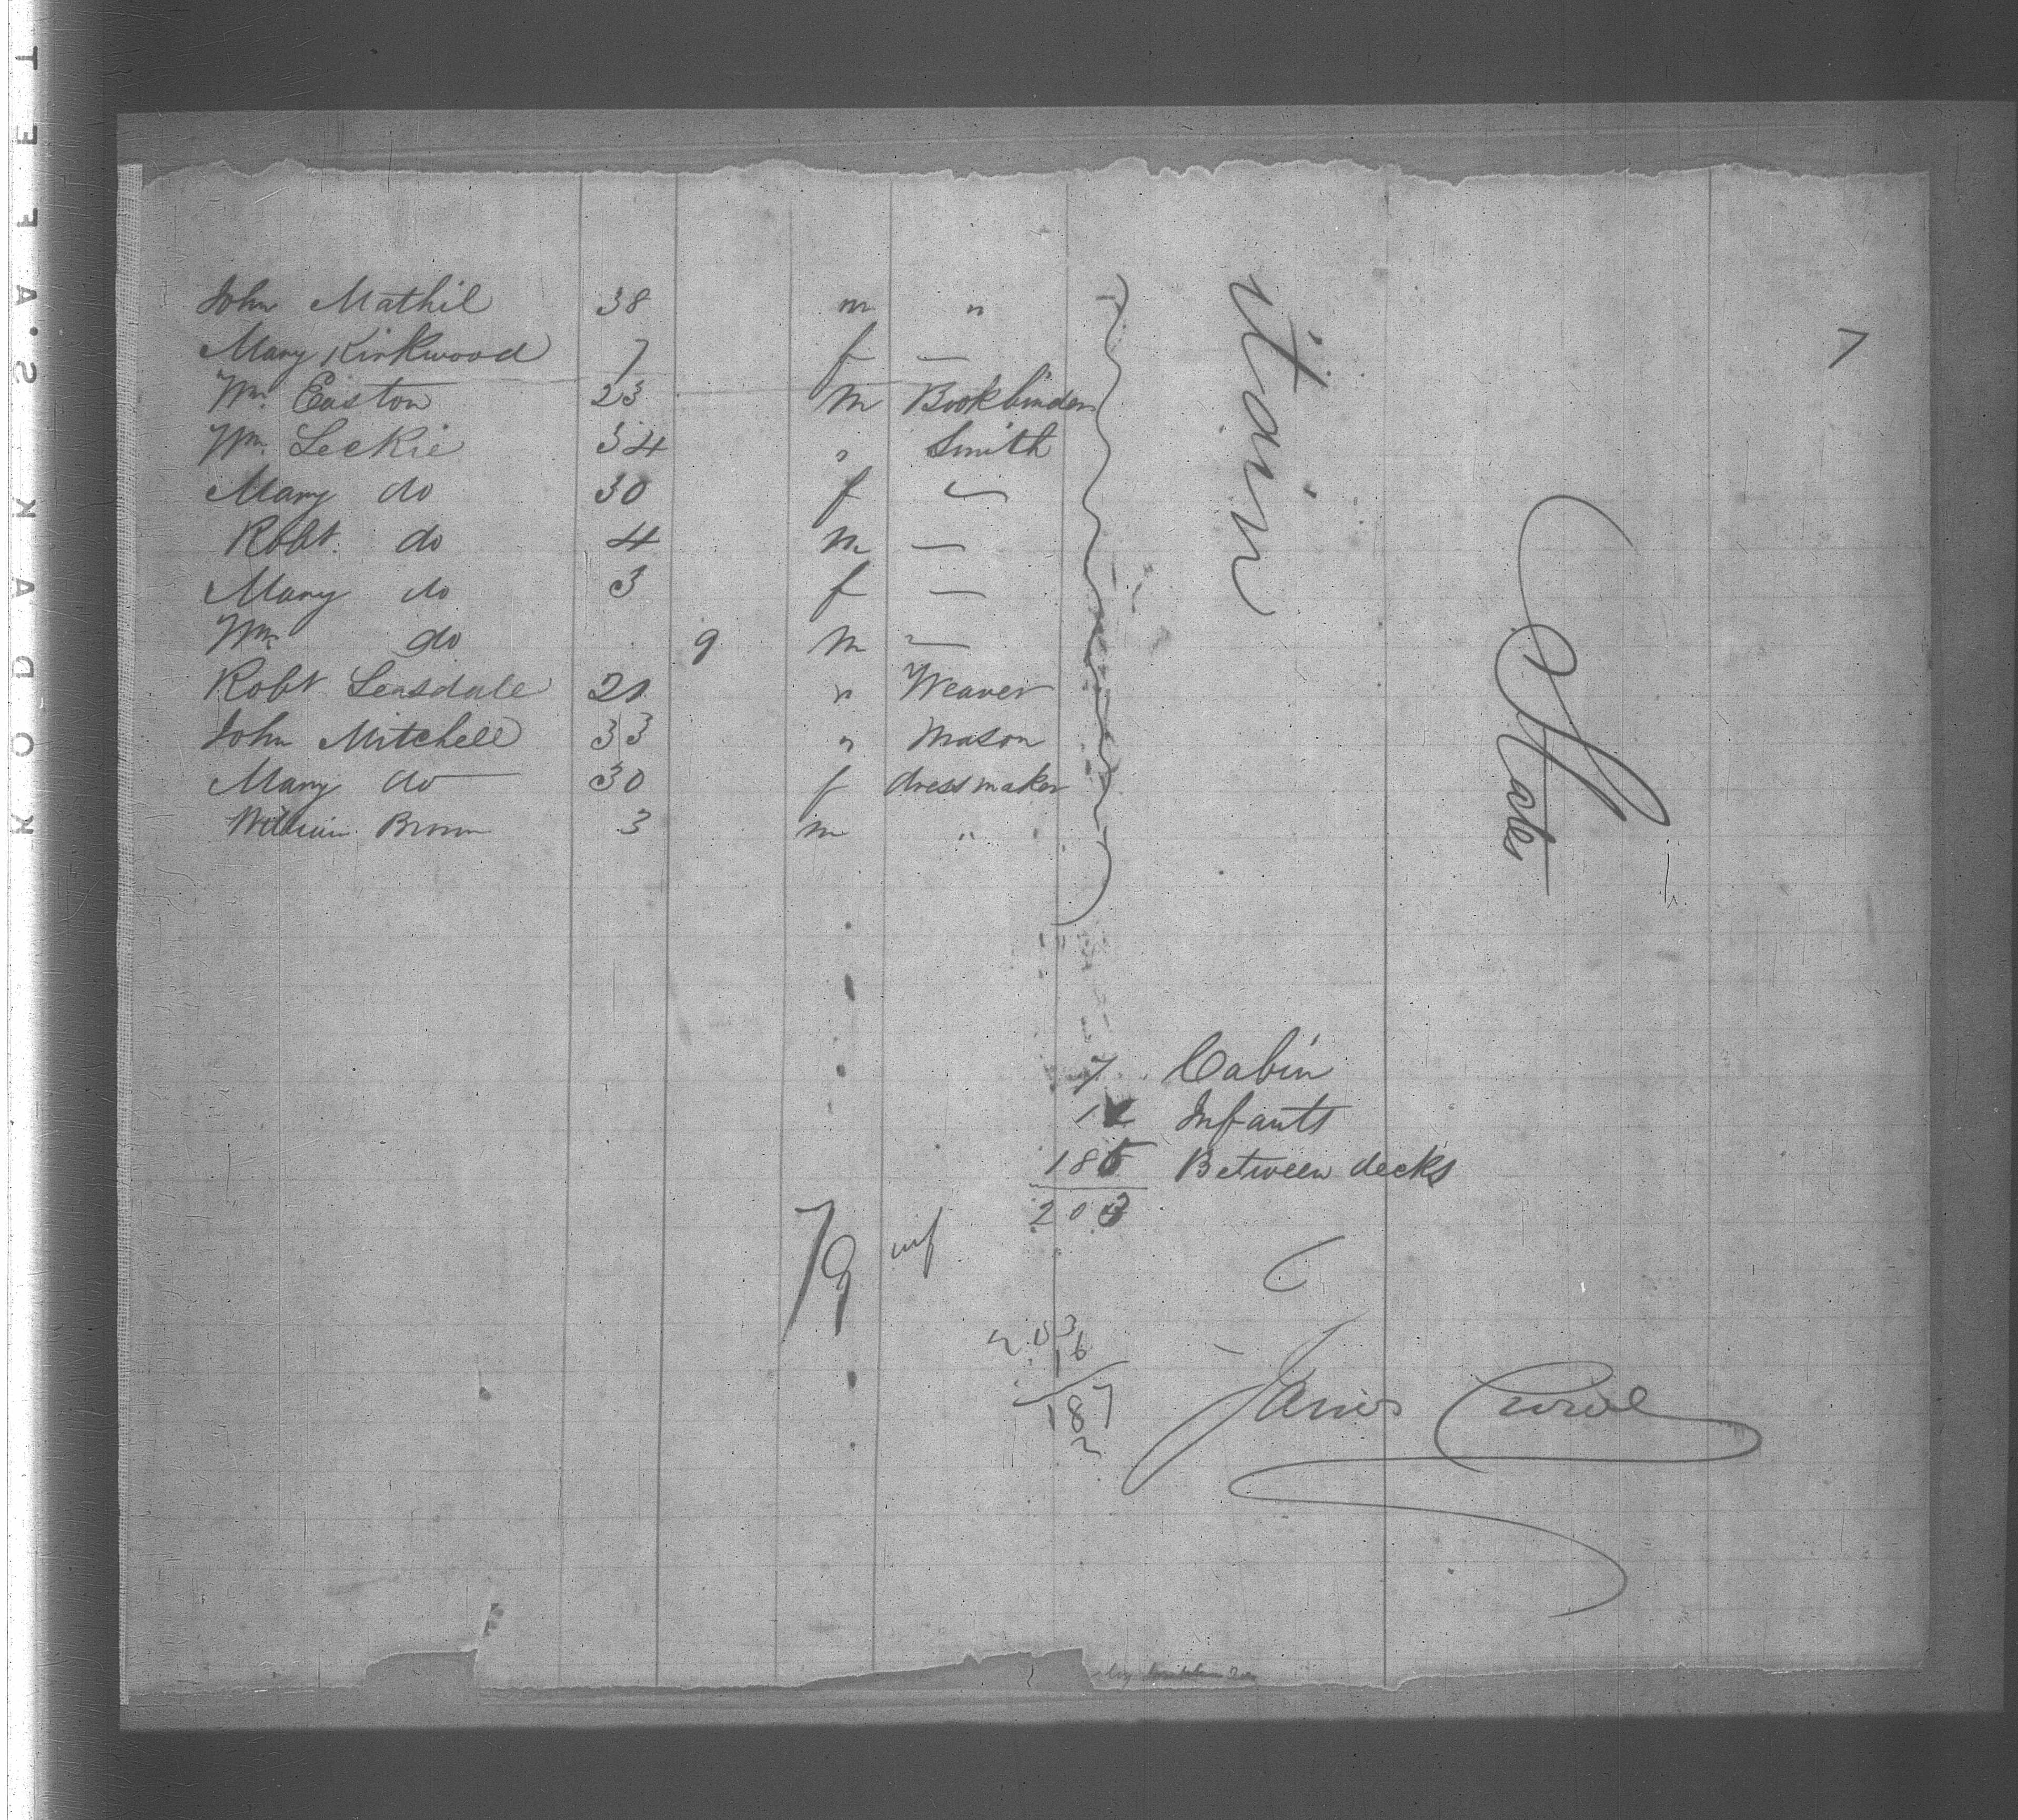 7
John Mathil 38 m "
Mary Kirkwood 7 f —
Wm. Easton 23 m Bookbinder
Wm. Leckie 34 " Smith
Mary do 30 f —
Robt. do 4 m —
Mary do 3 f —
Wm. do 9 m —
Robt Leasdale 21 " Weaver
John Mitchell 33 " Mason
Mary do 30 f dressmaker
William Brown 3 m "
itain
States
7 Cabin
12 Infants
Between decks
203
79 inf
203
16
187
James
KODAK S.AFETY